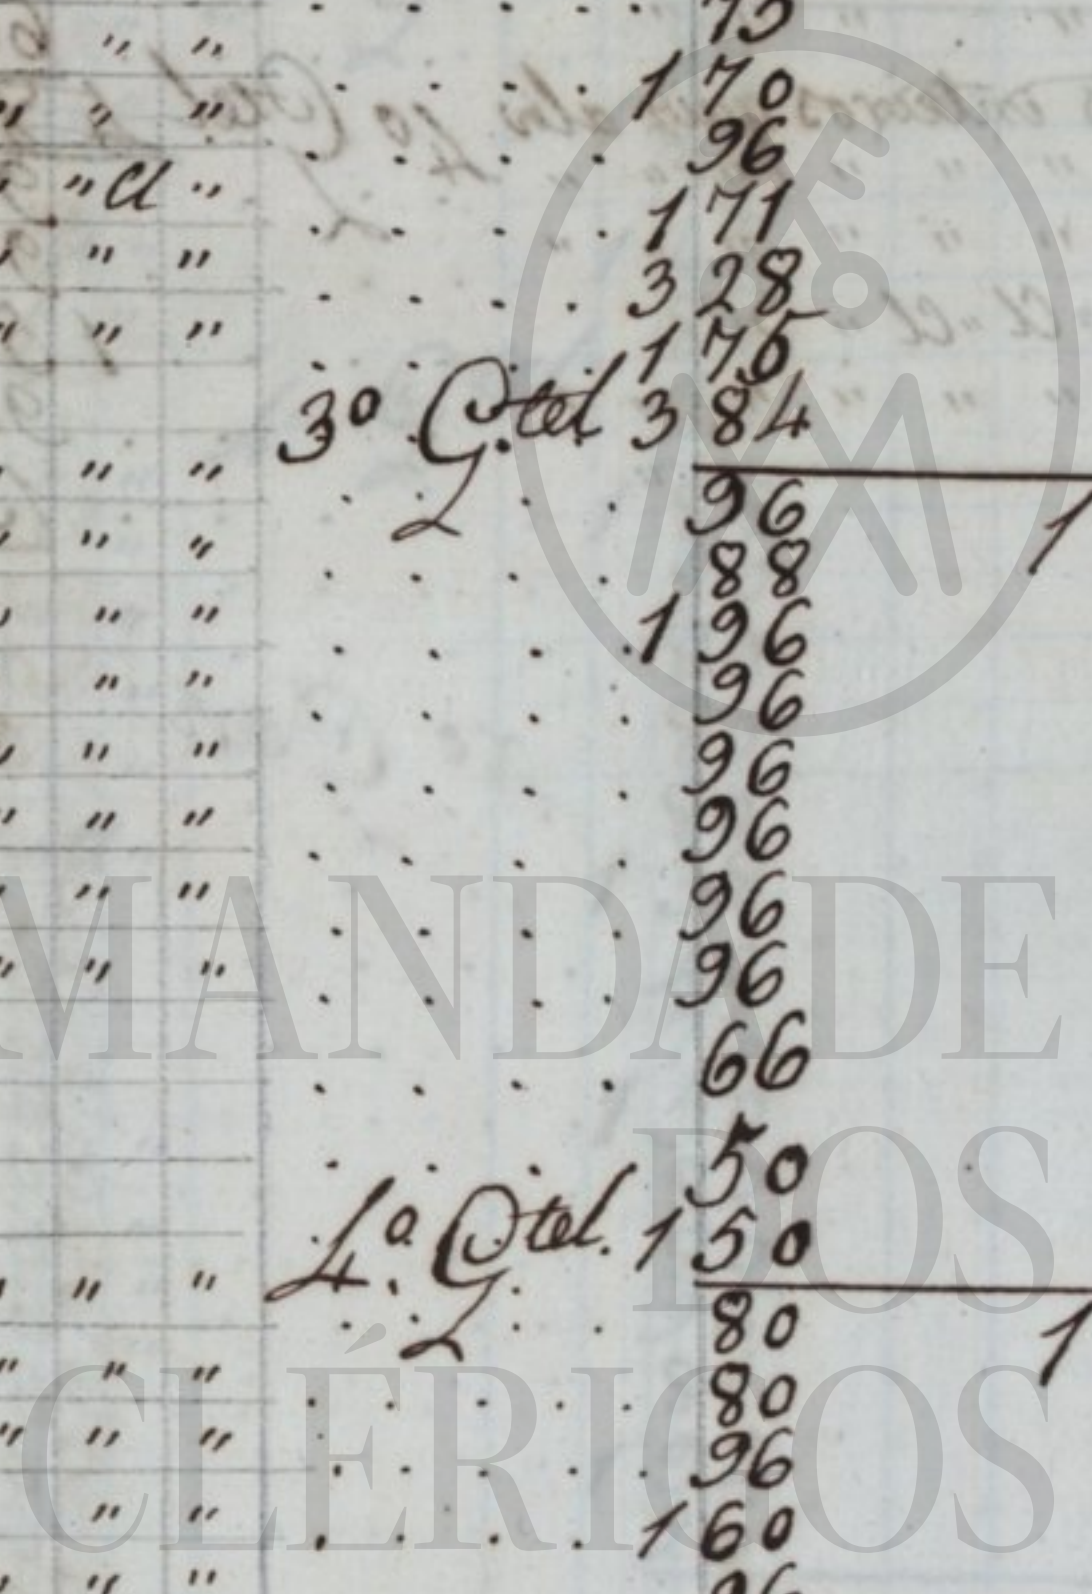 75
" " . . . . . 1 70
" " " . . . . 96
" " Cl " . . . . 1 71
" " " . . . . 3 28
" " " . . . . 1 75
3º Qtel 3 84
" " " . . . . 96 1
" " " . . . . 88
" " " . . . . 1 96
" " . . . . 96
" " " . . . . 96
" " " . . . . 96
" " " . . . . 96
" " " . . . . 96
. . . . 66
. . . 50
4º Qtel. 1 50
" " " . . . . 80 1
" " " . . . . . 80
" " " . . . . . 96
" " . . . . 1 60
" " 96
MANDADE
DOS
CLÉRIGOS